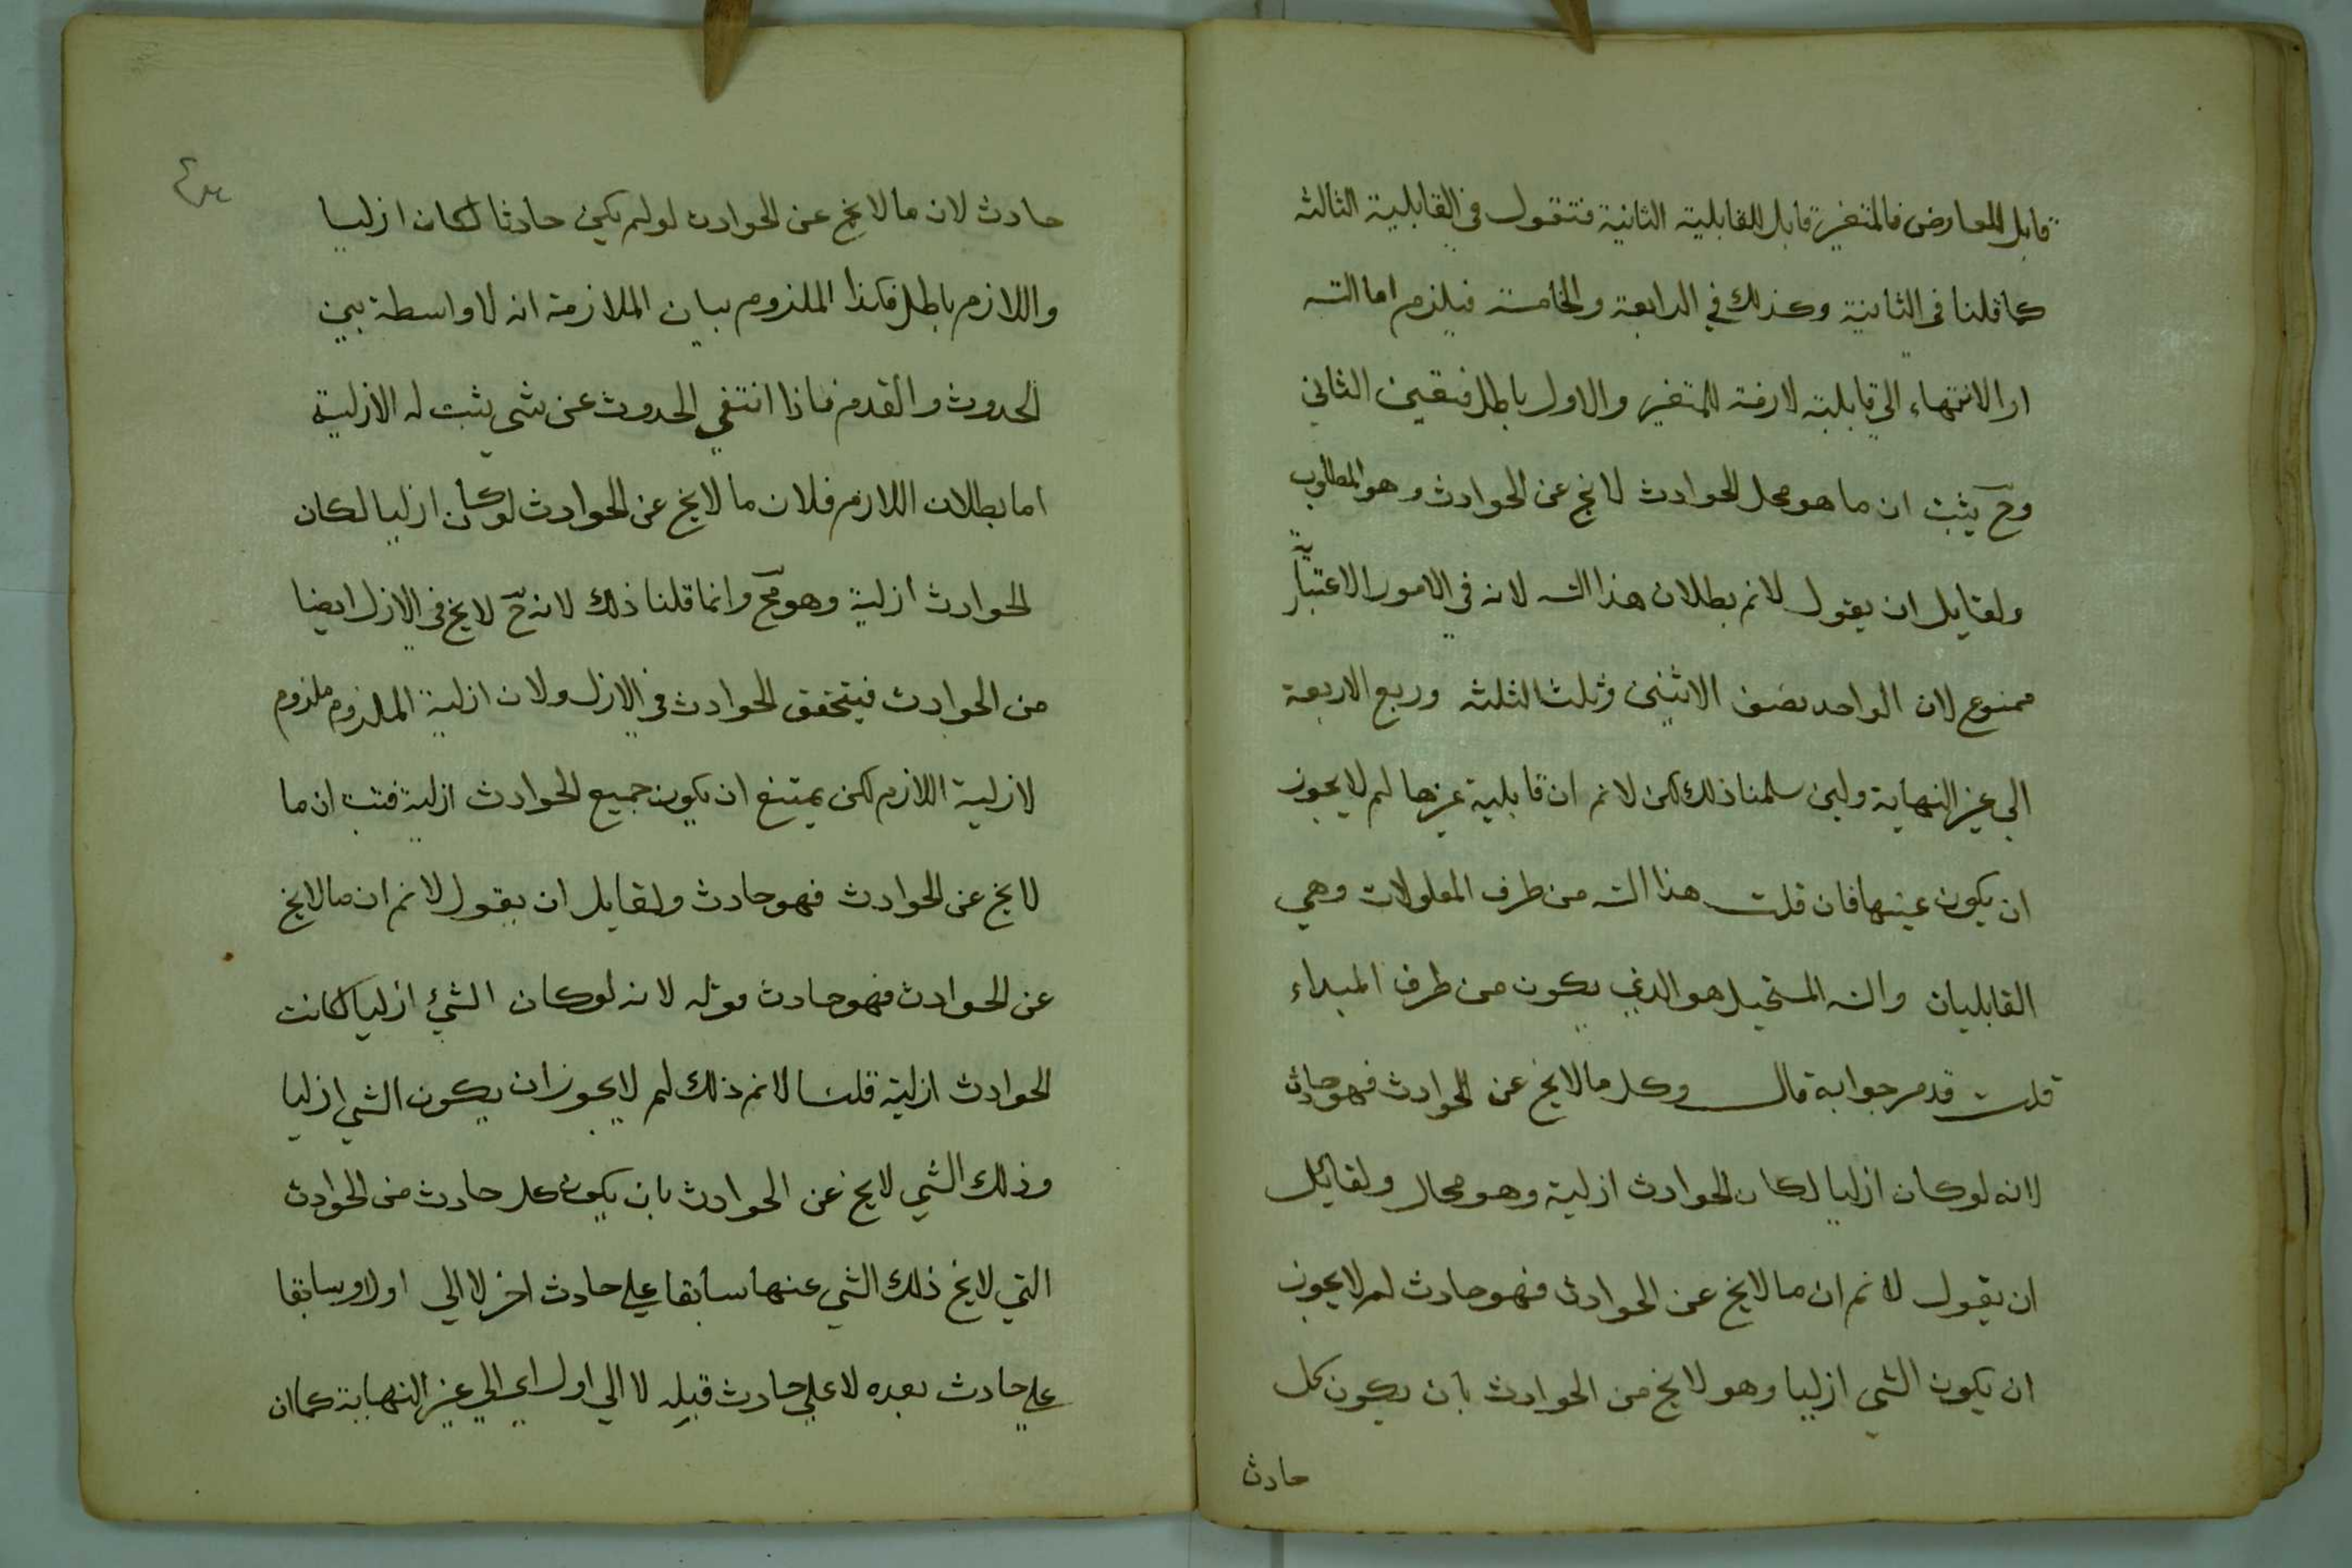 قابل للمعارض فالمتغير قابل للقابلية الثانية فنقول في القابلية الثالثة
كما قلنا في الثانية وكذلك في الرابعة والخامسة فيلزم اما التـ
او الانتهاء الى قابلية لازمة للمتغير والاول باطل فتعين الثاني
وح يثبت ان ما هو محل للحوادث لا يخ عن الحوادث وهو المطلوب
ولقايل ان يقول لانم بطلان هذا التـ لانه في الامور الاعتبارية
ممنوع لان الواحد نصف الاثنين وثلث الثلثة وربع الاربعة
الى غير النهاية ولين سلمنا ذلك لكن لانم ان قابلية غيرها لم لا يجوز
ان يكون عينها فان قلت هذا التـ من طرف المعلولات وهي
القابليات والتـ المستحيل هو الذي يكون من طرف المبداء
قلت قد مر جوابه قال وكل ما لا يخ عن الحوادث فهو حادث
لانه لو كان ازليا لكان الحوادث ازلية وهو محال ولقايل
ان يقول لانم ان ما لا يخ عن الحوادث فهو حادث لم لا يجوز
ان يكون الشي ازليا وهو لا يخ من الحوادث بان يكون كل
حادث
حادث لان ما لا يخ عن الحوادث لو لم يكن حادثا لكان ازليا
واللازم باطل فكذا الملزوم بيان الملازمة انه لا واسطة بين
الحدوث والقدم فاذا انتفي الحدوث عن شي يثبت له الازلية
اما بطلان اللازم فلان ما لا يخ عن الحوادث لو كان ازليا لكان
الحوادث ازلية وهو مح وانما قلنا ذلك لانه ح لا يخ في الازل ايضا
من الحوادث فيتحقق الحوادث في الازل ولان ازلية الملزوم ملزوم
لازلية اللازم لكن يمتنع ان يكون جميع الحوادث ازلية فثبت ان ما
لا يخ عن الحوادث فهو حادث ولقايل ان يقول لانم ان ما لا يخ
عن الحوادث فهو حادث قوله لانه لو كان الشيئ ازليا لكانت
الحوادث ازلية قلنا لانم ذلك لم لا يجوز ان يكون الشي ازليا
وذلك الشي لا يخ عن الحوادث بان يكون كل حادث من الحوادث
التي لا يخ ذلك الشي عنها سابقا على حادث اخر لا الي اول وسابقا
علي حادث بعده لا علي حادث قبله لا الي اول اي الي غير النهاية كما ان